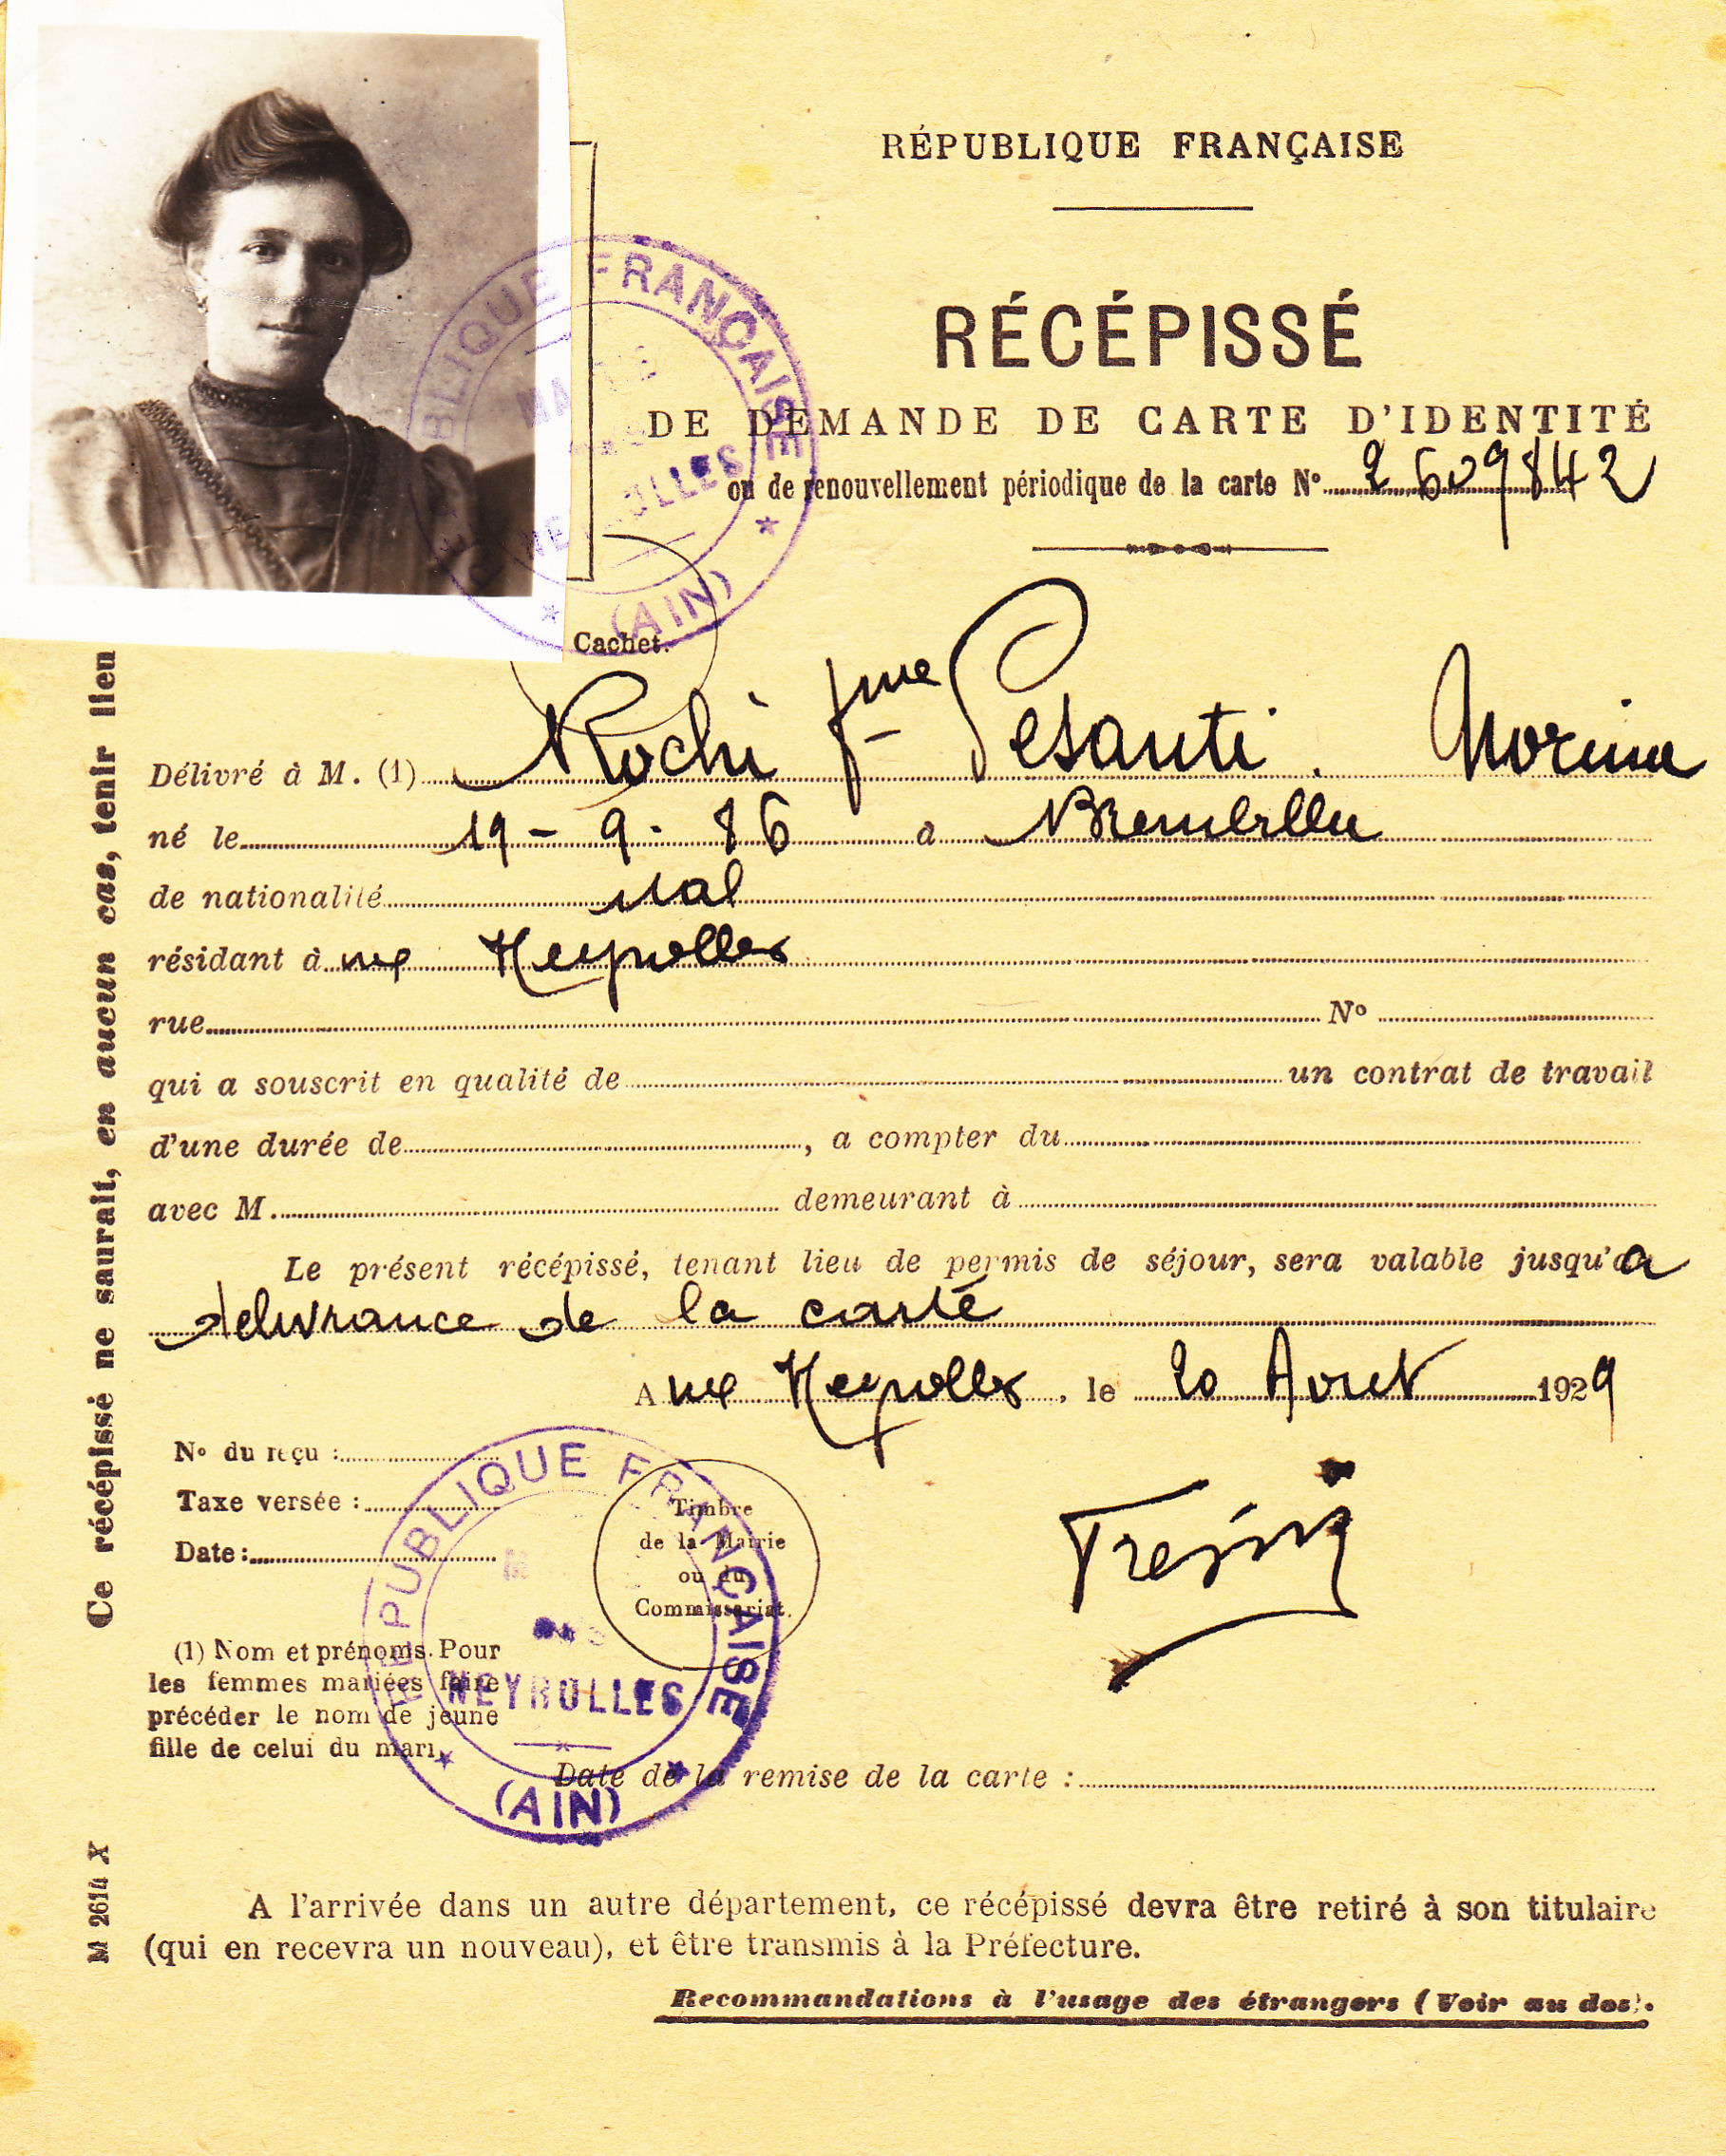 RÉPUBLIQUE FRANÇAISE
RÉCÉPISSÉ
DE DEMANDE DE CARTE D'IDENTITÉ
ou de renouvellement périodique de la carte N° 2609842
RÉPUBLIQUE FRANÇAISE
MAIRIE
NEYROLLES
(AIN)
Cachet.
Délivré à M. (1) Rochi fme Pesanti. Norina
né le 19 - 9 - 86 à
de nationalité ital
résidant à Neyrolles
rue N°
qui a souscrit en qualité de un contrat de travail
d'une durée de , a compter du
avec M. demeurant à
Le présent récépissé, tenant lieu de permis de séjour, sera valable jusqu'a
delivrance de la carte
A Neyrolles, le 20 Aout 1929
N° du reçu :
Taxe versée :
Date :
Timbre
de la Mairie
ou du
Commissariat.
RÉPUBLIQUE FRANÇAISE
NEYROLLES
(AIN)
(1) Nom et prénoms. Pour
les femmes mariées faire
précéder le nom de jeune
fille de celui du mari.
Date de la remise de la carte :
A l'arrivée dans un autre département, ce récépissé devra être retiré à son titulaire
(qui en recevra un nouveau), et être transmis à la Préfecture.
Recommandations à l'usage des étrangers (Voir au dos).
Ce récépissé ne saurait, en aucun cas, tenir lieu
M 2614 X